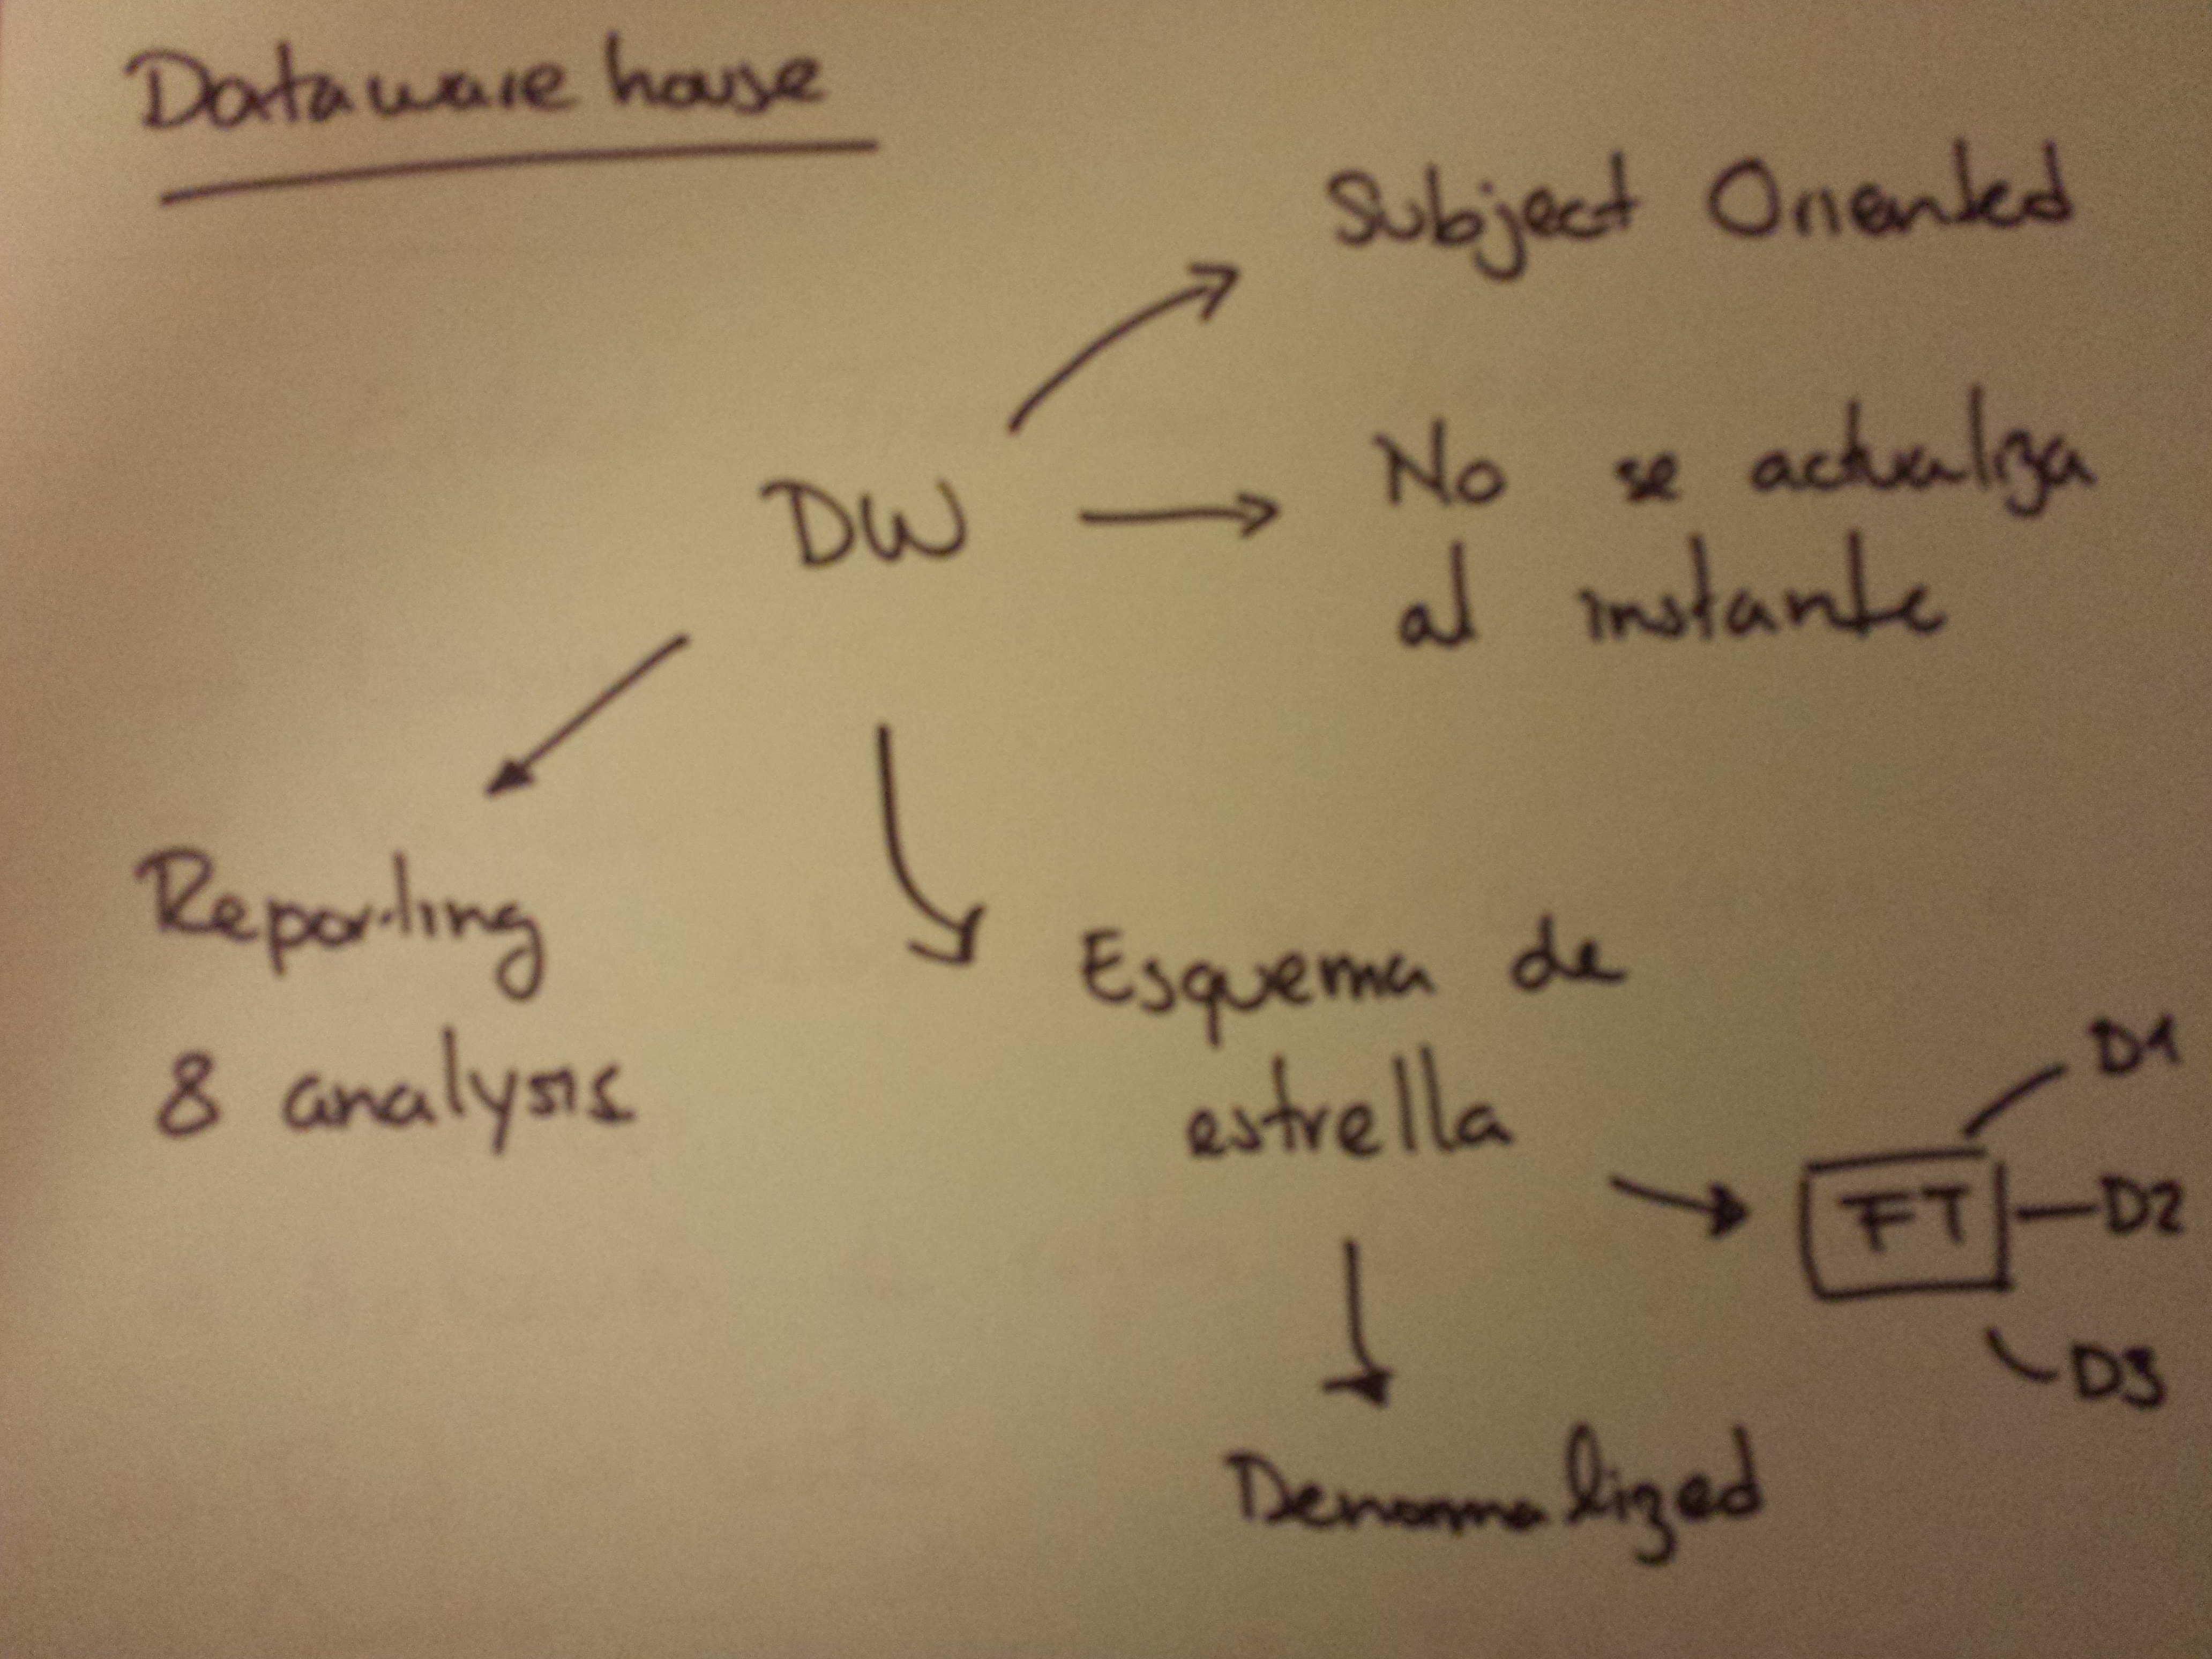 Dataware house
Subject Oriented
DW
No se actualiza
al instante
Reporting
& analysis
Esquema de
estrella
D1
FT
D2
D3
Denormalized